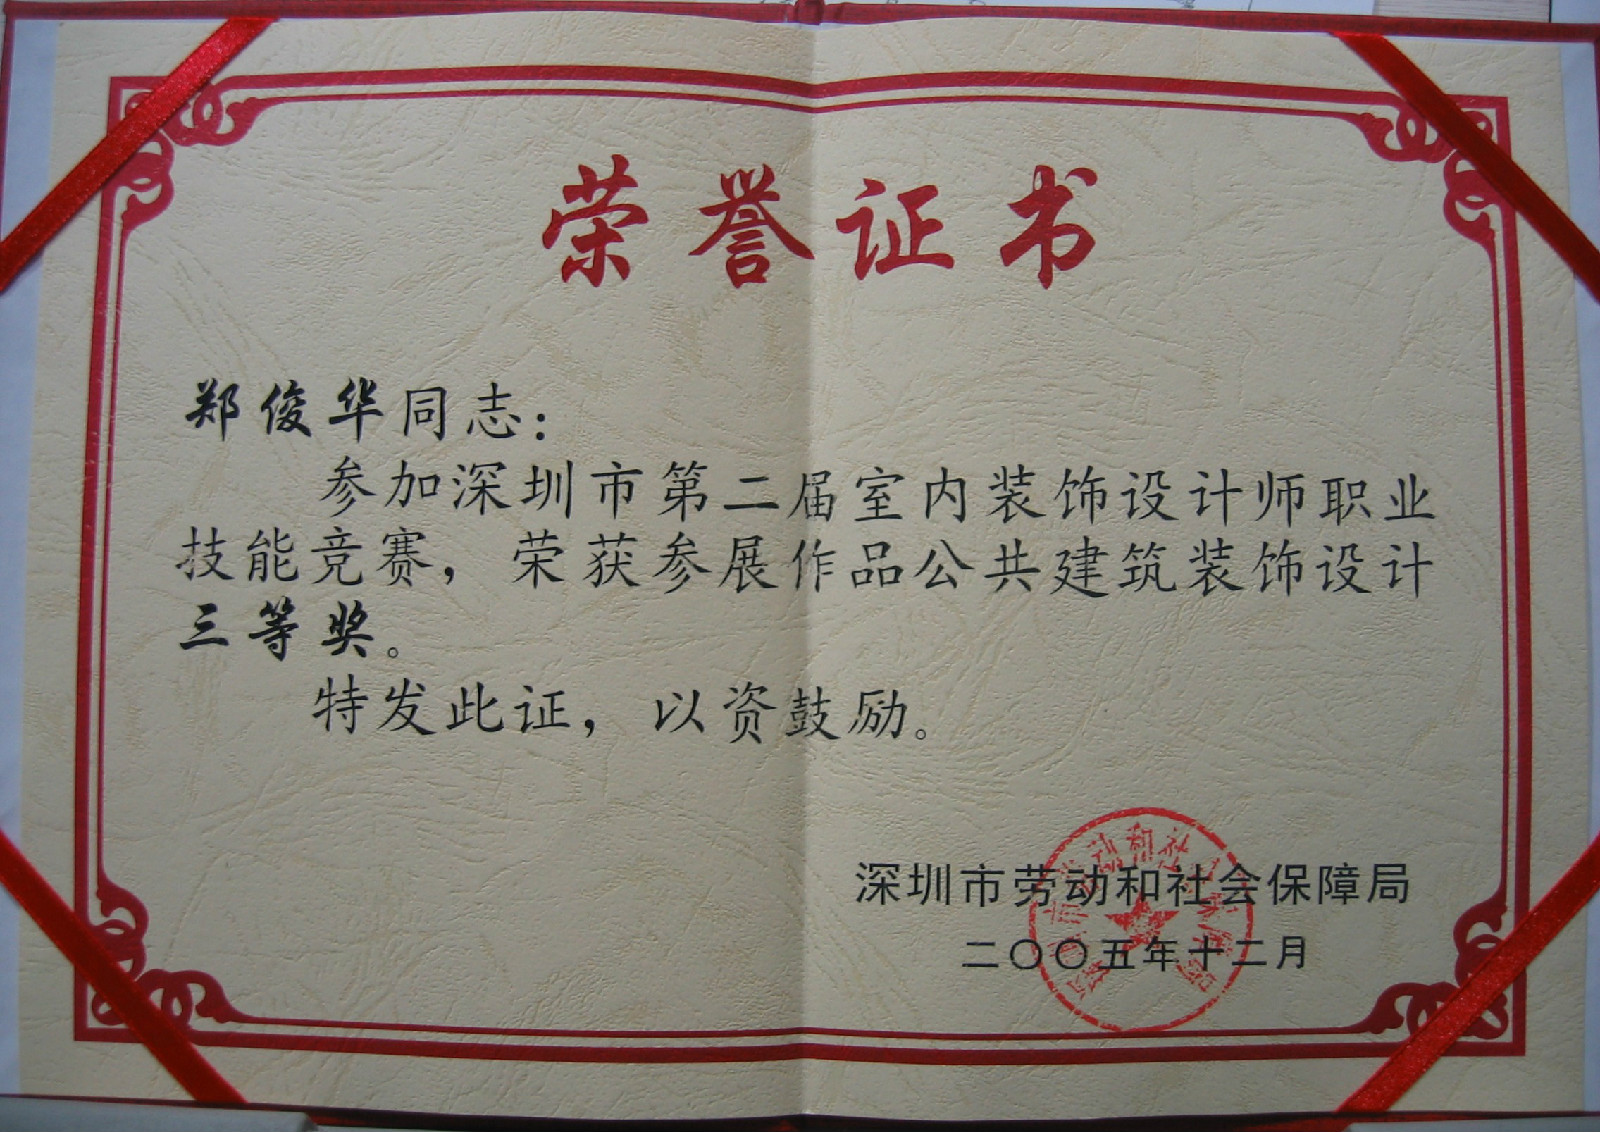 荣誉证书
郑俊华同志：
参加深圳市第二届室内装饰设计师职业
技能竞赛，荣获参展作品公共建筑装饰设计
三等奖。
特发此证，以资鼓励。
深圳市劳动和社会保障局
二〇〇五年十二月